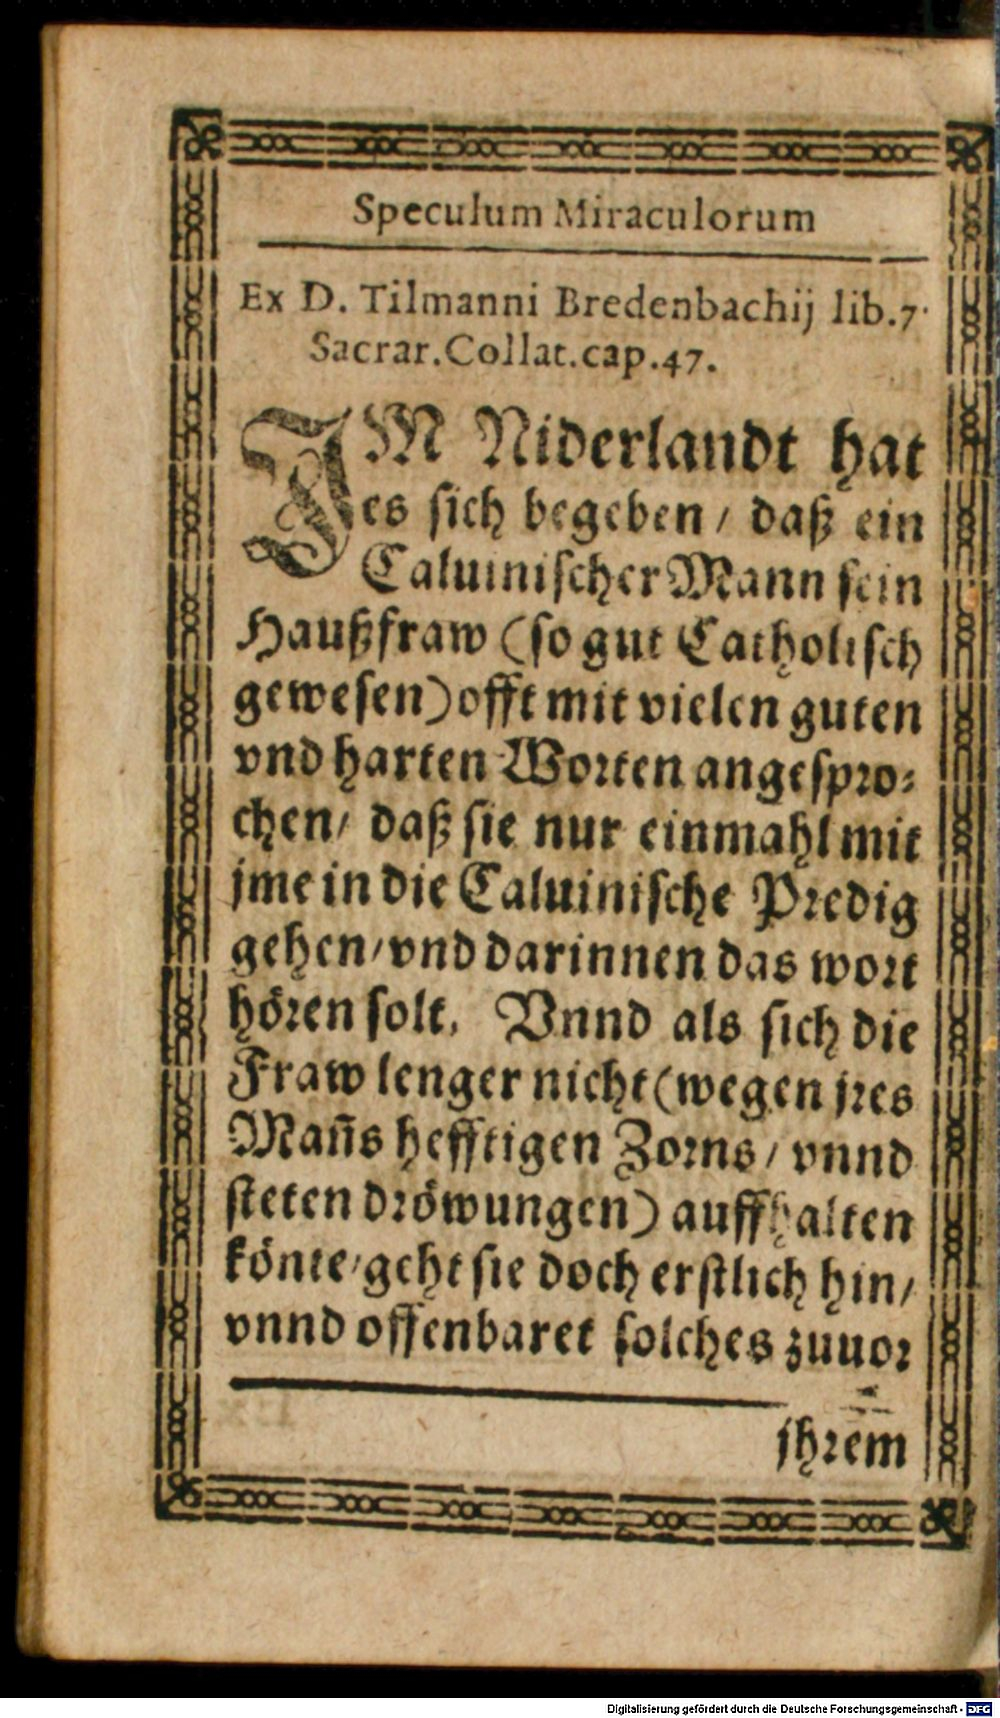 Speculum Miraculorum
Ex D. Tilmanni Bredenbachij lib.7.
Sacrar.Collat.cap.47.
IM Niderlandt hat
es sich begeben / daß ein
Caluinischer Mann sein
Haußfraw (so gut Catholisch
gewesen) offt mit vielen guten
vnd harten Worten angespro-
chen / daß sie nur einmahl mit
jme in die Caluinische Predig
gehen / vnd darinnen das wort
hören solt. Vnnd als sich die
Fraw lenger nicht (wegen jres
Mañs hefftigen Zorns / vnnd
steten dröwungen) auffhalten
könte / geht sie doch erstlich hin /
vnnd offenbaret solches zuuor
jhrem
Digitalisierung gefördert durch die Deutsche Forschungsgemeinschaft - DFG